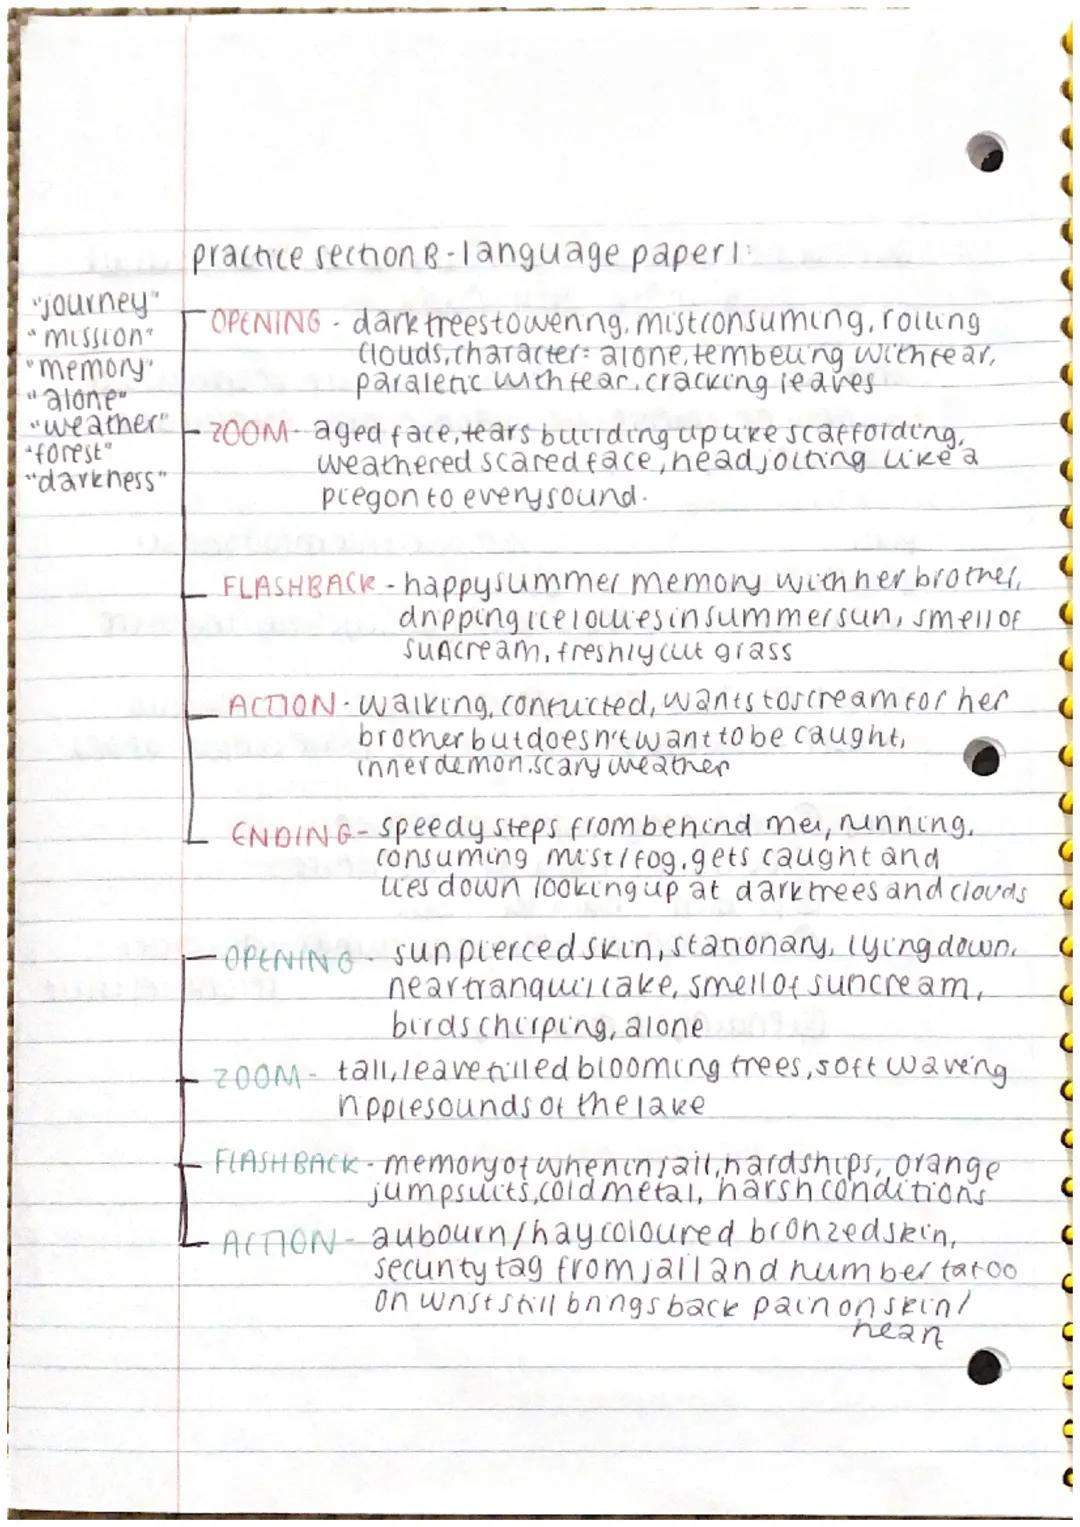 practice section B - language paper 1:
"journey"
"mission"
"memory"
"alone"
"weather"
"forest"
"darkness"
OPENING - dark trees towering, mist consuming, rolling
clouds, character: alone, tembeling with fear,
paraletic with fear, cracking leaves
ZOOM - aged face, tears building up like scaffolding,
weathered scared face, head jolting like a
piegon to every sound.
FLASHBACK - happy summer memory with her brother,
dripping ice lollies in summer sun, smell of
suncream, freshly cut grass
ACTION - walking, conflicted, wants to scream for her
brother but doesn't want to be caught,
inner demon. scary weather
ENDING - speedy steps from behind me, running,
consuming mist/fog, gets caught and
lies down looking up at dark trees and clouds
OPENING - sun pierced skin, stationary, lying down,
near tranquil lake, smell of suncream,
birds chirping, alone
ZOOM - tall, leave filled blooming trees, soft waving
ripple sounds of the lake
FLASHBACK - memory of when in jail, hardships, orange
jumpsuits, cold metal, harsh conditions
ACTION - aubourn/hay coloured bronzed skin,
security tag from jail and number tatoo
on wrist still brings back pain on skin/
heart